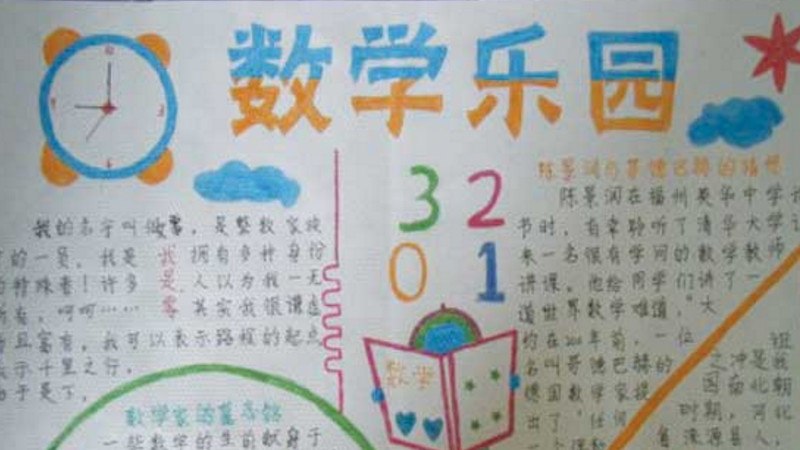 数学乐园
3 2
0 1
数学
我的名字叫做零，是整数家族
的一员，我是
拥有多种身份
我是零
的特殊者！许多
人以为我一无
所有，呵呵……
其实我很谦虚
而且富有，我可以表示路程的起点
表示千里之行，
始于足下，
数学家的墓志铭
一些数学的生前献身于
陈景润与哥德巴赫的猜想
陈景润在福州英华中学
节时，有幸聆听了清华大学
来一名很有学问的数学教师
讲课。他给同学们讲了一
道世界数学难题，"大
约在200年前，一位
名叫哥德巴赫的
德国数学家提
出了"任何
祖
之冲是我
国南北朝
时期，河北
省涞源县人，